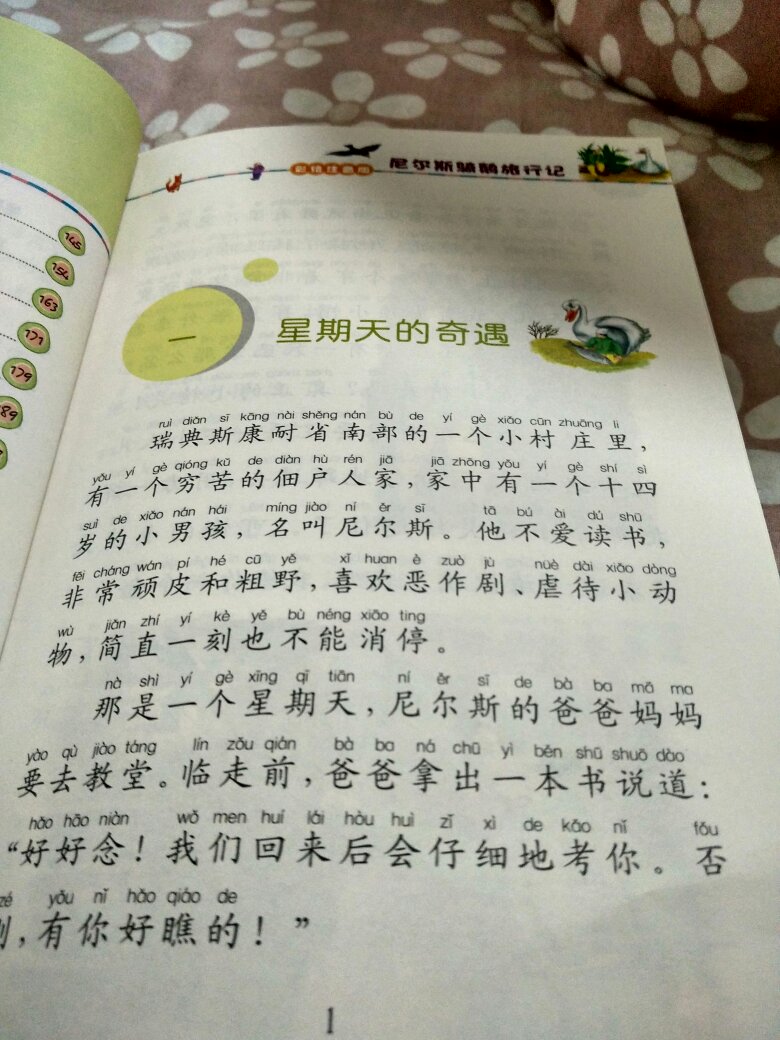 145
154
163
171
179
89
彩绘注音版 尼尔斯骑鹅旅行记
一 星期天的奇遇
ruì diǎn sī kāng nài shěng nán bù de yí gè xiǎo cūn zhuāng lǐ
瑞典斯康耐省南部的一个小村庄里，
yǒu yí gè qióng kǔ de diàn hù rén jiā jiā zhōng yǒu yí gè shí sì
有一个穷苦的佃户人家，家中有一个十四
suì de xiǎo nán hái míng jiào ní ěr sī tā bú ài dú shū
岁的小男孩，名叫尼尔斯。他不爱读书，
fēi cháng wán pí hé cū yě xǐ huan è zuò jù nüè dài xiǎo dòng
非常顽皮和粗野，喜欢恶作剧、虐待小动
wù jiǎn zhí yí kè yě bù néng xiāo ting
物，简直一刻也不能消停。
nà shì yí gè xīng qī tiān ní ěr sī de bà ba mā ma
那是一个星期天，尼尔斯的爸爸妈妈
yào qù jiào táng lín zǒu qián bà ba ná chū yì běn shū shuō dào
要去教堂。临走前，爸爸拿出一本书说道：
hǎo hāo niàn wǒ men huí lái hòu huì zǐ xì de kǎo nǐ fǒu
“好好念！我们回来后会仔细地考你。否
zé yǒu nǐ hǎo qiáo de
则，有你好瞧的！”
1